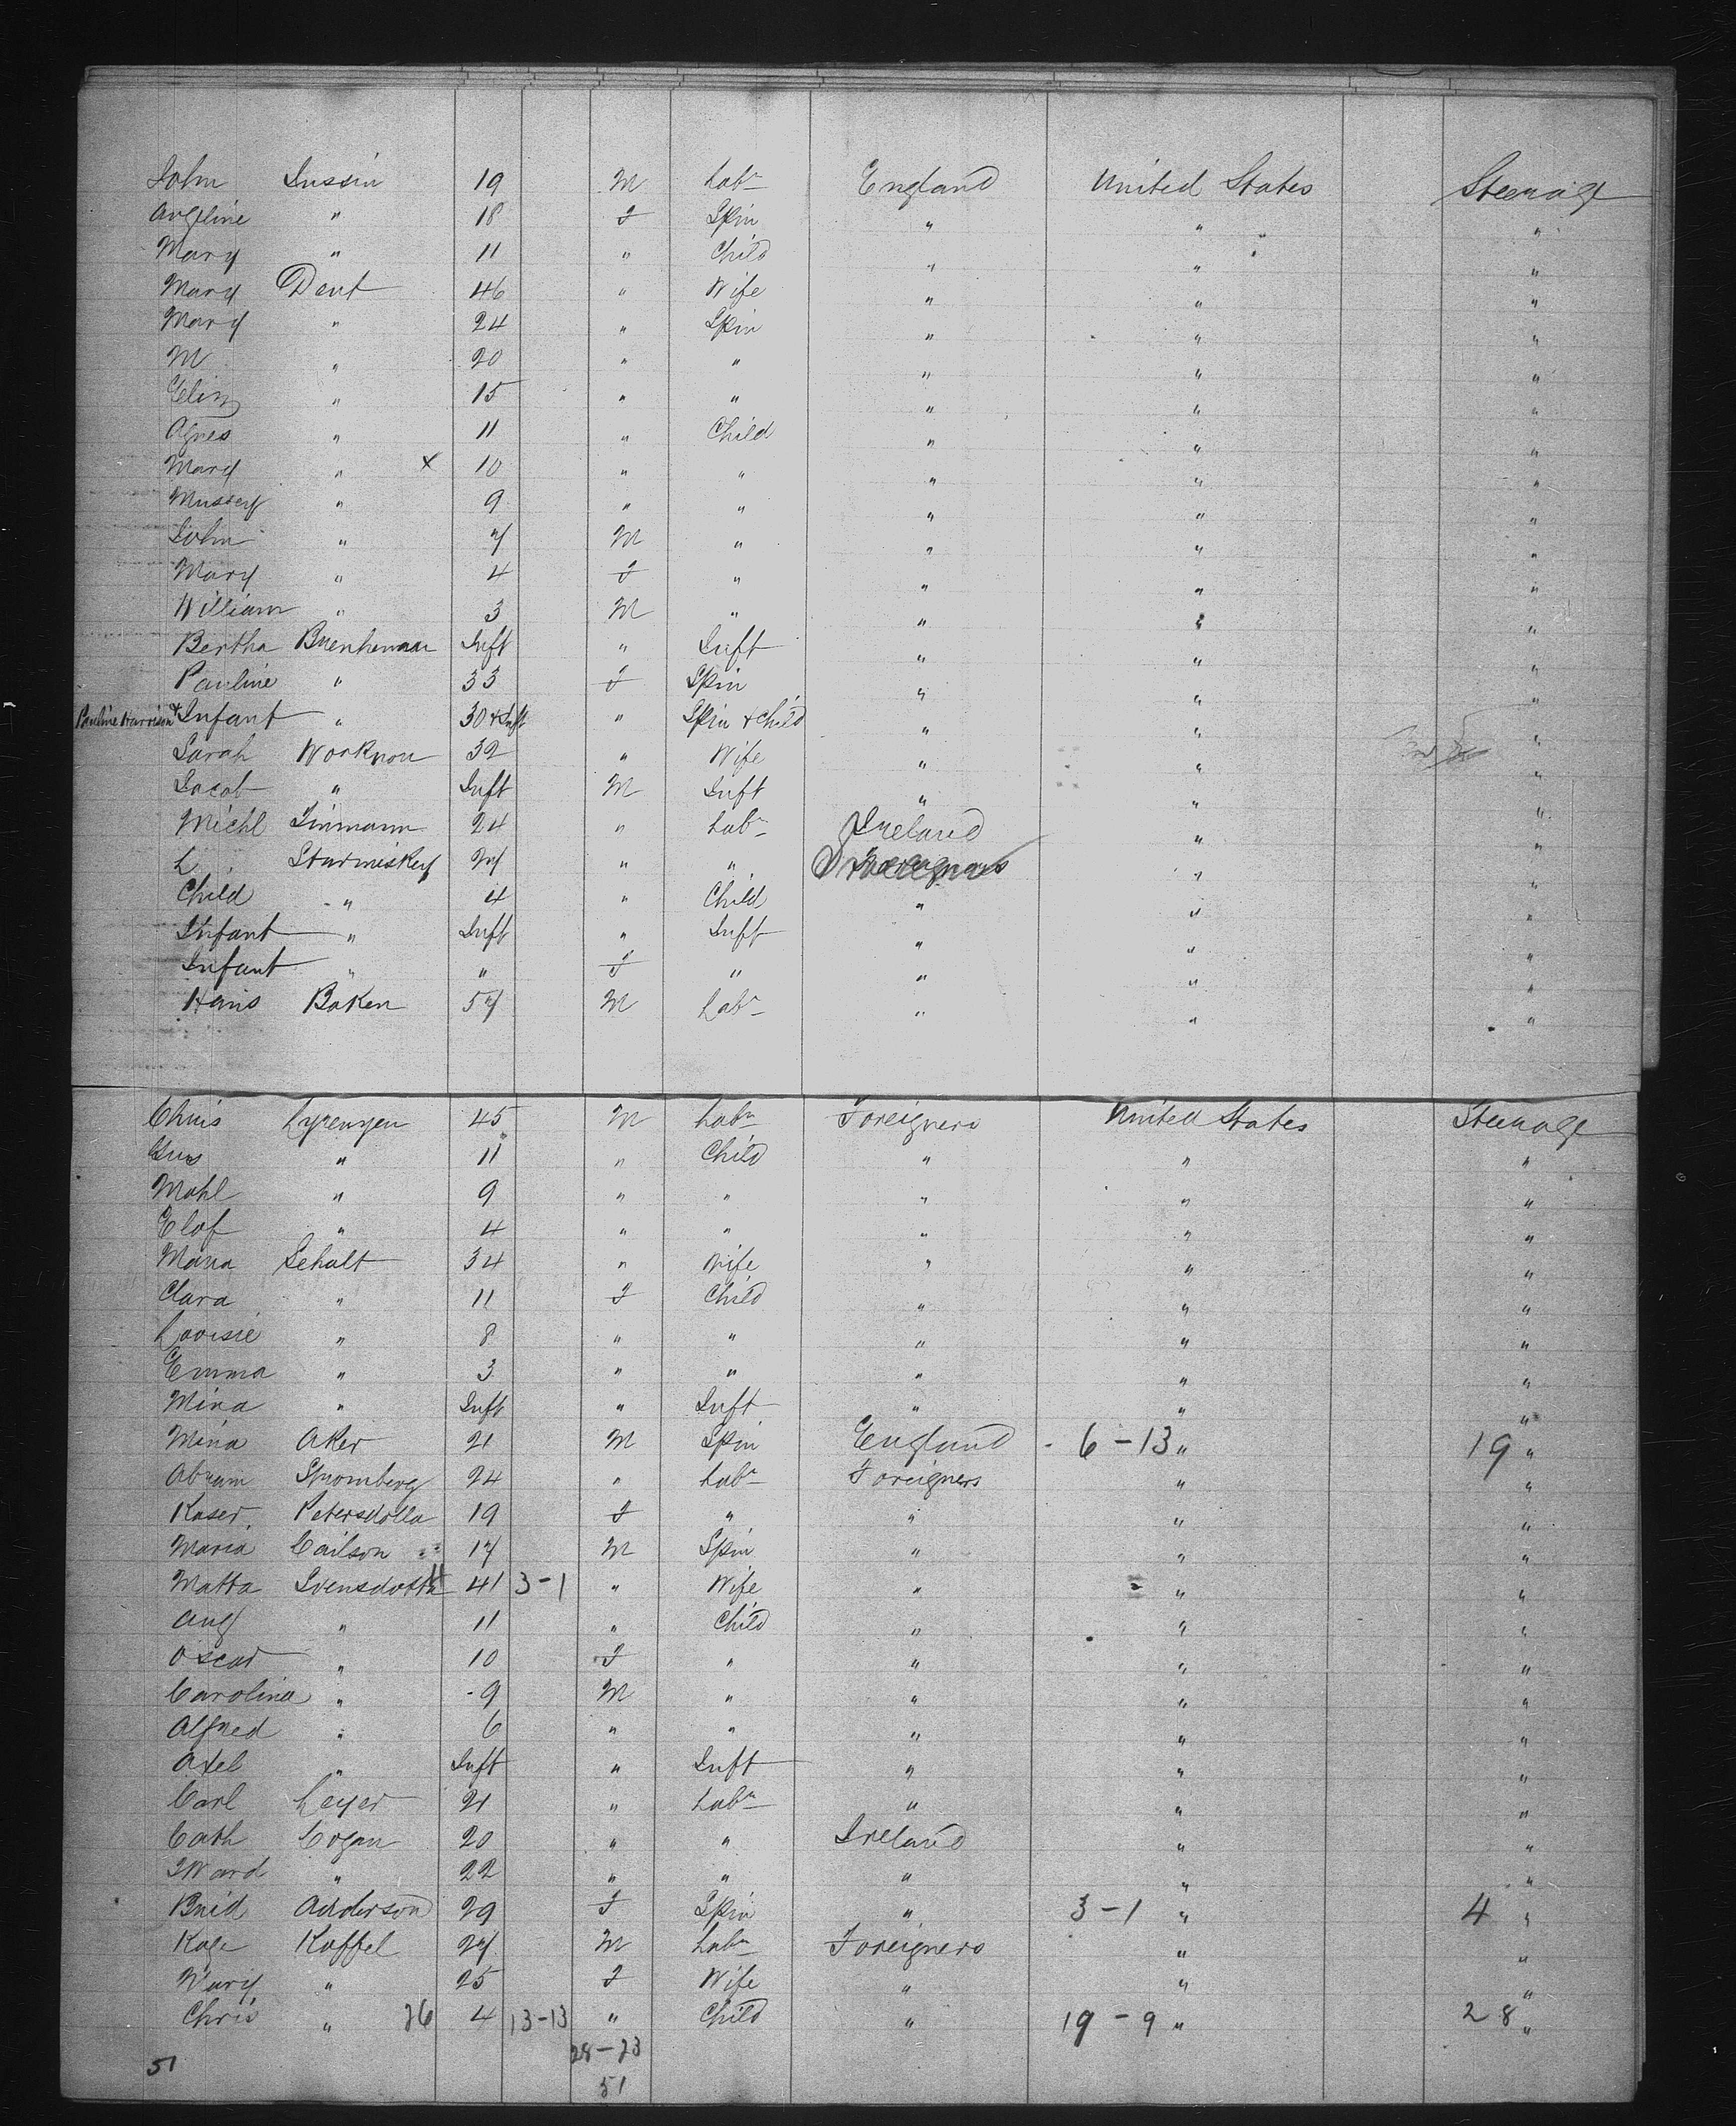 John Sussin 19 M Labr England United States Steerage
Angeline " 18 F Spin " " "
Mary " 11 " Child " " "
Mary Dent 46 " Wife " " "
Mary " 24 " Spin " " "
M " 20 " " " " "
Eliz " 15 " " " " "
Agnes " 11 " Child " " "
Mary " x 10 " " " " "
Mussey " 9 " " " " "
John " 7 M " " " "
Mary " 4 F " " " "
William " 3 M " " " "
Bertha Buenheman Inft " Inft " " "
Pauline " 33 F Spin " " "
Pauline Harrison + Infant " 30 + Inft " Spin + Child " " "
Sarah Worknou 32 " Wife " " "
Jacob " Inft M Inft " " "
Michl Linmann 24 " Labr Ireland " "
L Starmiskey 27 " " Foreigners " "
Child " 4 " Child " " "
Infant " Inft " Inft " " "
Infant " " F " " " "
Hans Baken 57 M Labr " " "
Chris Lyrenyen 45 M Labr Foreigners United States Steerage
Gus " 11 " Child " " "
Mahl " 9 " " " " "
Elof " 4 " " " " "
Maria Schalt 34 " Wife " " "
Clara " 11 F Child " " "
Lovisie " 8 " " " " "
Emma " 3 " " " " "
Mina " Inft " Inft " " "
Mina Aker 21 M Spin England 6-13 " 19 "
Abram Stromberg 24 " Labr Foreigners " "
Kaser Petersdolla 19 F " " " "
Maria Cailson 17 M Spin " " "
Matta Svensdotta 41 3-1 " Wife " " "
Aug " 11 " Child " " "
Oscar " 10 F " " " "
Carolina " 9 M " " " "
Alfred " 6 " " " " "
Axel " Inft " Inft " " "
Carl Leyer 21 " Labr " " "
Cath Cogan 20 " " Ireland " "
Ward " 22 " " " " "
Brid Anderson 29 F Spin " 3-1 " 4 "
Kage Kaffel 27 M Labr Foreigners " "
Mary " 25 F Wife " " "
Chris " 26 4 13-13 " Child " 19-9 " 28 "
28-23
51 51